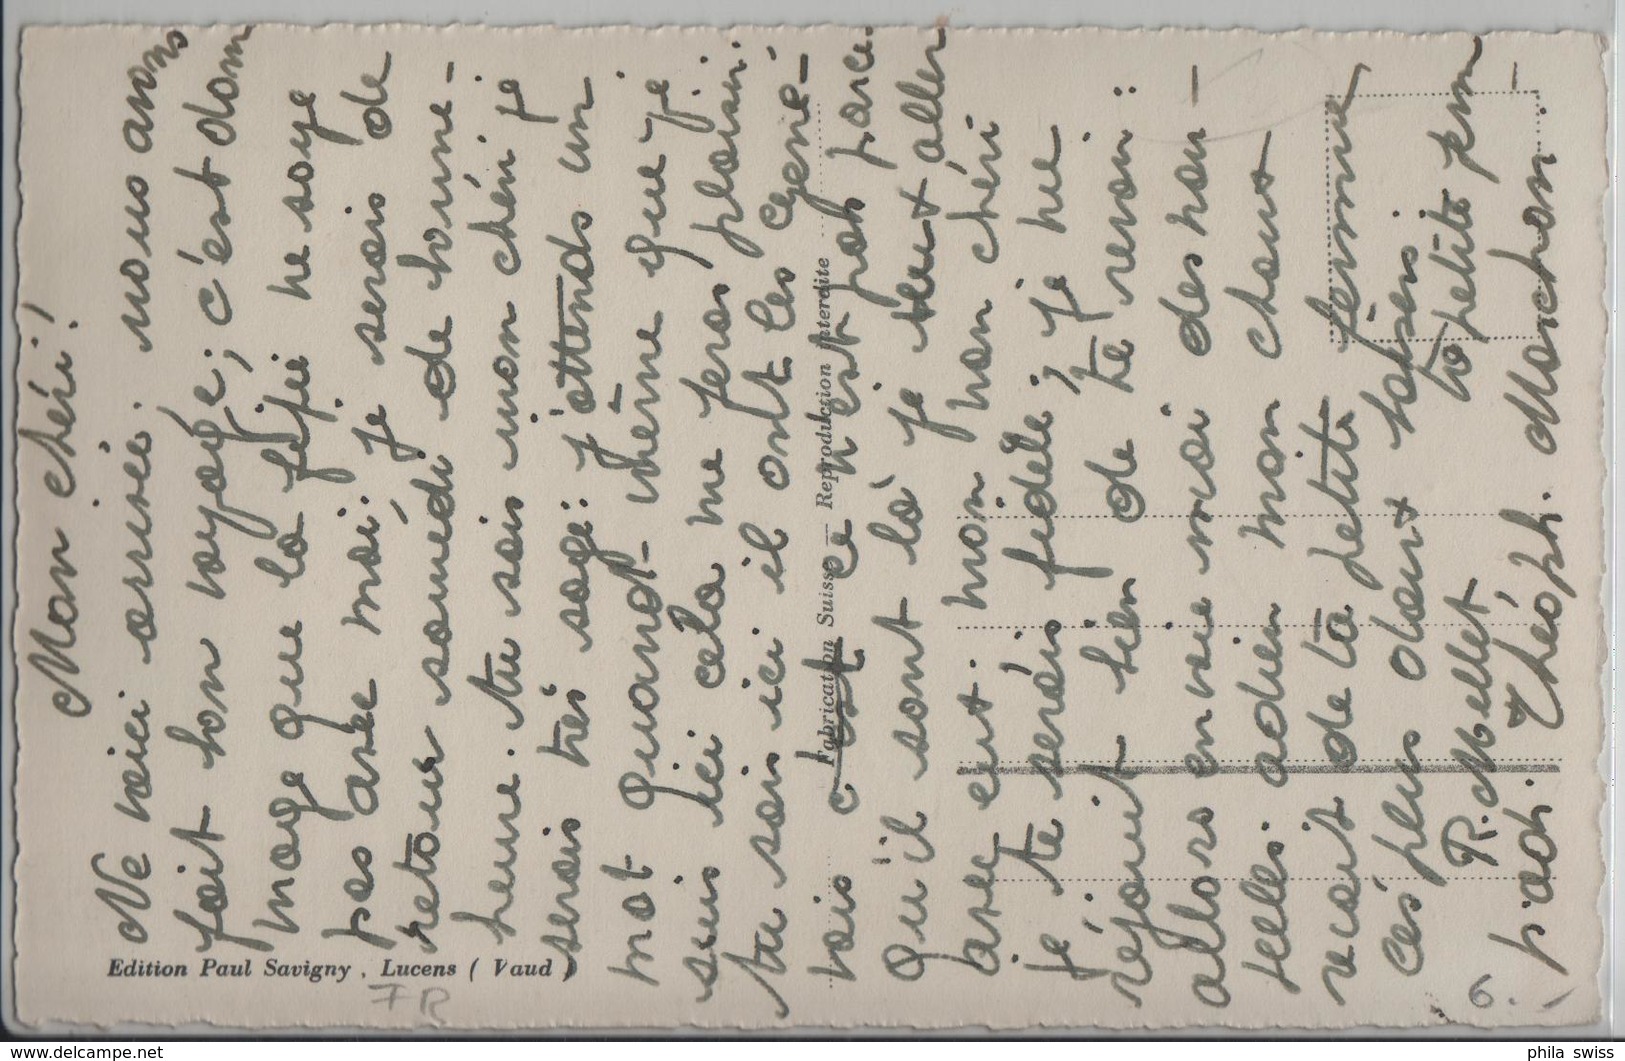 Mon chéri!
Me voici arrivée. nous avons
fait bon voyage; c'est dom
mage que la fifie ne soye
pas avec moi: je serais de
retour samedi de bonne-
heure. tu sais mon chéri je
serais très sage: j'attends un
mot quand-même que je
suis ici cela me feras plaisir.
tu sais ici il ont les Gene-
vois c'est ce n'est pas parce
qu'il sont là je veut aller
avec eux. mon mon chéri
je te serais fidèle; je me
rejouit bien de te revoir:
allors envoie moi des nou-
velles. adieu mon chou
recoit de ta petite femme
ces plus doux baisers
ta petite
R. Mellet
p. adr. Théoph. Marchon.
Edition Paul Savigny, Lucens (Vaud)
Fabrication Suisse — Reproduction interdite
FR
6.-
phila swiss
www.delcampe.net